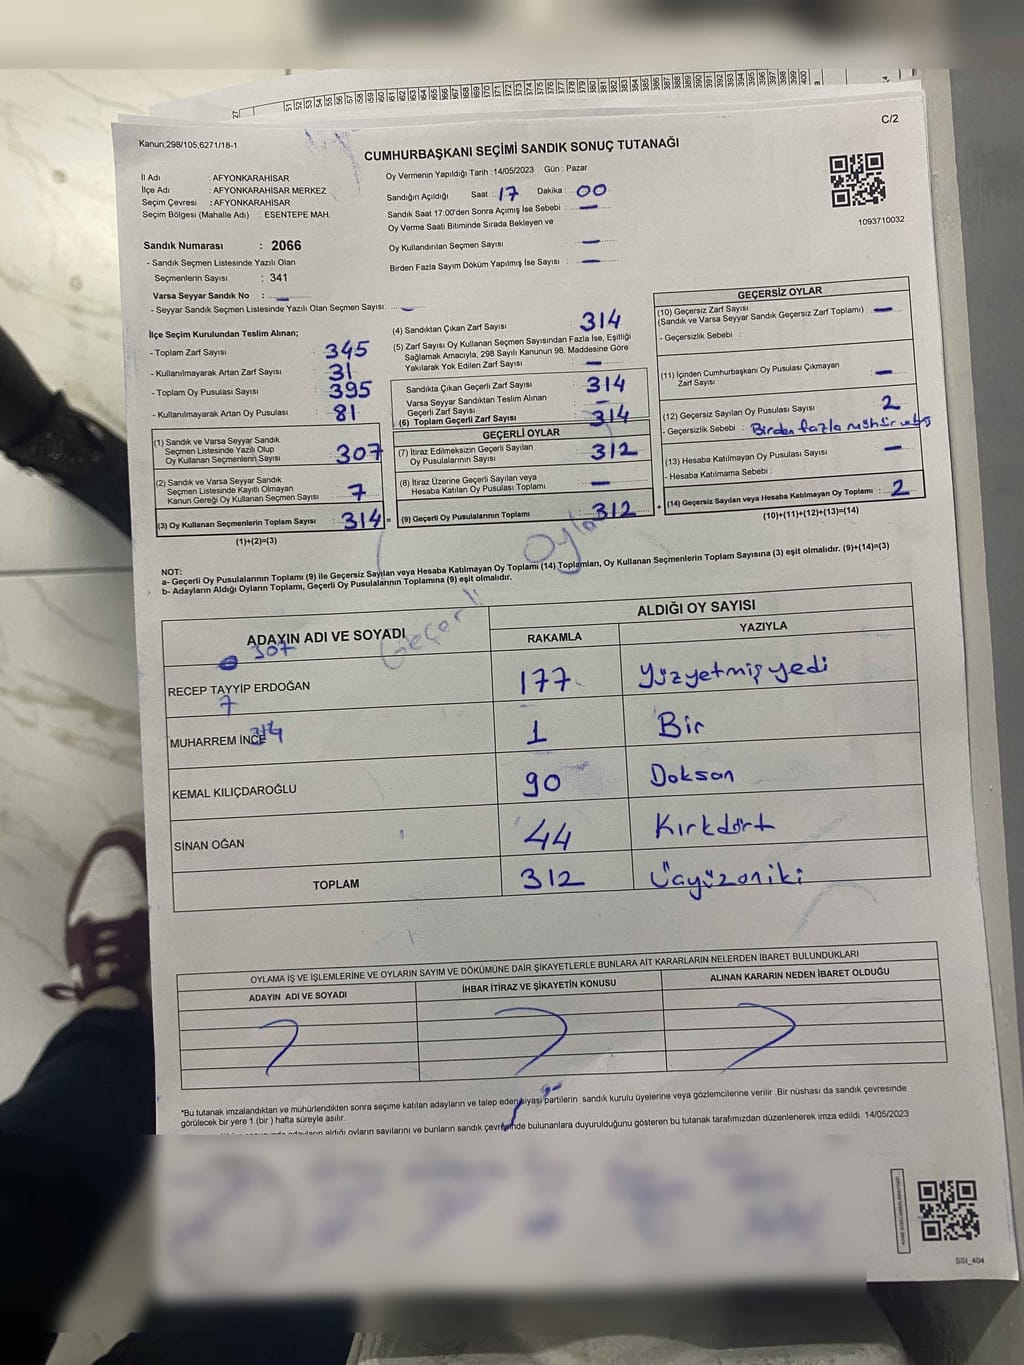 C/2
Kanun;298/105,6271/18-1
CUMHURBAŞKANI SEÇİMİ SANDIK SONUÇ TUTANAĞI
İl Adı : AFYONKARAHİSAR
İlçe Adı : AFYONKARAHİSAR MERKEZ
Seçim Çevresi : AFYONKARAHİSAR
Seçim Bölgesi (Mahalle Adı) : ESENTEPE MAH.
Oy Vermenin Yapıldığı Tarih :14/05/2023 Gün : Pazar
Sandığın Açıldığı Saat : 17 Dakika : 00
Sandık Saat 17:00'den Sonra Açımış İse Sebebi : —
Oy Verme Saati Bitiminde Sırada Bekleyen ve
Oy Kullandırılan Seçmen Sayısı : —
Birden Fazla Sayım Döküm Yapılmış İse Sayısı : —
1093710032
Sandık Numarası : 2066
- Sandık Seçmen Listesinde Yazılı Olan
Seçmenlerin Sayısı : 341
Varsa Seyyar Sandık No : —
- Seyyar Sandık Seçmen Listesinde Yazılı Olan Seçmen Sayısı: —
İlçe Seçim Kurulundan Teslim Alınan;
- Toplam Zarf Sayısı : 345
- Kullanılmayarak Artan Zarf Sayısı : 31
- Toplam Oy Pusulası Sayısı : 395
- Kullanılmayarak Artan Oy Pusulası : 81
(1) Sandık ve Varsa Seyyar Sandık
Seçmen Listesinde Yazılı Olup
Oy Kullanan Seçmenlerin Sayısı : 307
(2) Sandık ve Varsa Seyyar Sandık
Seçmen Listesinde Kayıtlı Olmayan
Kanun Gereği Oy Kullanan Seçmen Sayısı : 7
(3) Oy Kullanan Seçmenlerin Toplam Sayısı : 314 =
(1)+(2)=(3)
(4) Sandıktan Çıkan Zarf Sayısı : 314
(5) Zarf Sayısı Oy Kullanan Seçmen Sayısından Fazla İse, Eşitliği
Sağlamak Amacıyla, 298 Sayılı Kanunun 98. Maddesine Göre
Yakılarak Yok Edilen Zarf Sayısı : —
Sandıkta Çıkan Geçerli Zarf Sayısı : 314
Varsa Seyyar Sandıktan Teslim Alınan
Geçerli Zarf Sayısı : —
(6) Toplam Geçerli Zarf Sayısı : 314
GEÇERLİ OYLAR
(7) İtiraz Edilmeksizin Geçerli Sayılan
Oy Pusulalarının Sayısı : 312
(8) İtiraz Üzerine Geçerli Sayılan veya
Hesaba Katılan Oy Pusulası Toplamı : —
(9) Geçerli Oy Pusulalarının Toplamı : 312 +
GEÇERSİZ OYLAR
(10) Geçersiz Zarf Sayısı
(Sandık ve Varsa Seyyar Sandık Geçersiz Zarf Toplamı) : —
- Geçersizlik Sebebi :
(11) İçinden Cumhurbaşkanı Oy Pusulası Çıkmayan
Zarf Sayısı : —
(12) Geçersiz Sayılan Oy Pusulası Sayısı : 2
- Geçersizlik Sebebi : Birden fazla mühür
(13) Hesaba Katılmayan Oy Pusulası Sayısı : —
- Hesaba Katılmama Sebebi :
(14) Geçersiz Sayılan veya Hesaba Katılmayan Oy Toplamı : 2
(10)+(11)+(12)+(13)=(14)
NOT:
a- Geçerli Oy Pusulalarının Toplamı (9) ile Geçersiz Sayılan veya Hesaba Katılmayan Oy Toplamı (14) Toplamları, Oy Kullanan Seçmenlerin Toplam Sayısına (3) eşit olmalıdır. (9)+(14)=(3)
b- Adayların Aldığı Oyların Toplamı, Geçerli Oy Pusulalarının Toplamına (9) eşit olmalıdır.
Geçerli Oylar
ADAYIN ADI VE SOYADI
ALDIĞI OY SAYISI
RAKAMLA YAZIYLA
307
RECEP TAYYİP ERDOĞAN 177 Yüzyetmişyedi
7
MUHARREM İNCE 1 Bir
314
KEMAL KILIÇDAROĞLU 90 Doksan
SİNAN OĞAN 44 Kırkdört
TOPLAM 312 Üçyüzoniki
OYLAMA İŞ VE İŞLEMLERİNE VE OYLARIN SAYIM VE DÖKÜMÜNE DAİR ŞİKAYETLERLE BUNLARA AİT KARARLARIN NELERDEN İBARET BULUNDUKLARI
ADAYIN ADI VE SOYADI İHBAR İTİRAZ VE ŞİKAYETİN KONUSU ALINAN KARARIN NEDEN İBARET OLDUĞU
*Bu tutanak imzalandıktan ve mühürlendikten sonra seçime katılan adayların ve talep eden siyasi partilerin sandık kurulu üyelerine veya gözlemcilerine verilir .Bir nüshası da sandık çevresinde
görülecek bir yere 1 (bir ) hafta süreyle asılır.
adayların aldığı oyların sayılarını ve bunların sandık çevresinde bulunanlara duyurulduğunu gösteren bu tutanak tarafımızdan düzenlenerek imza edildi. 14/05/2023
SSI_404